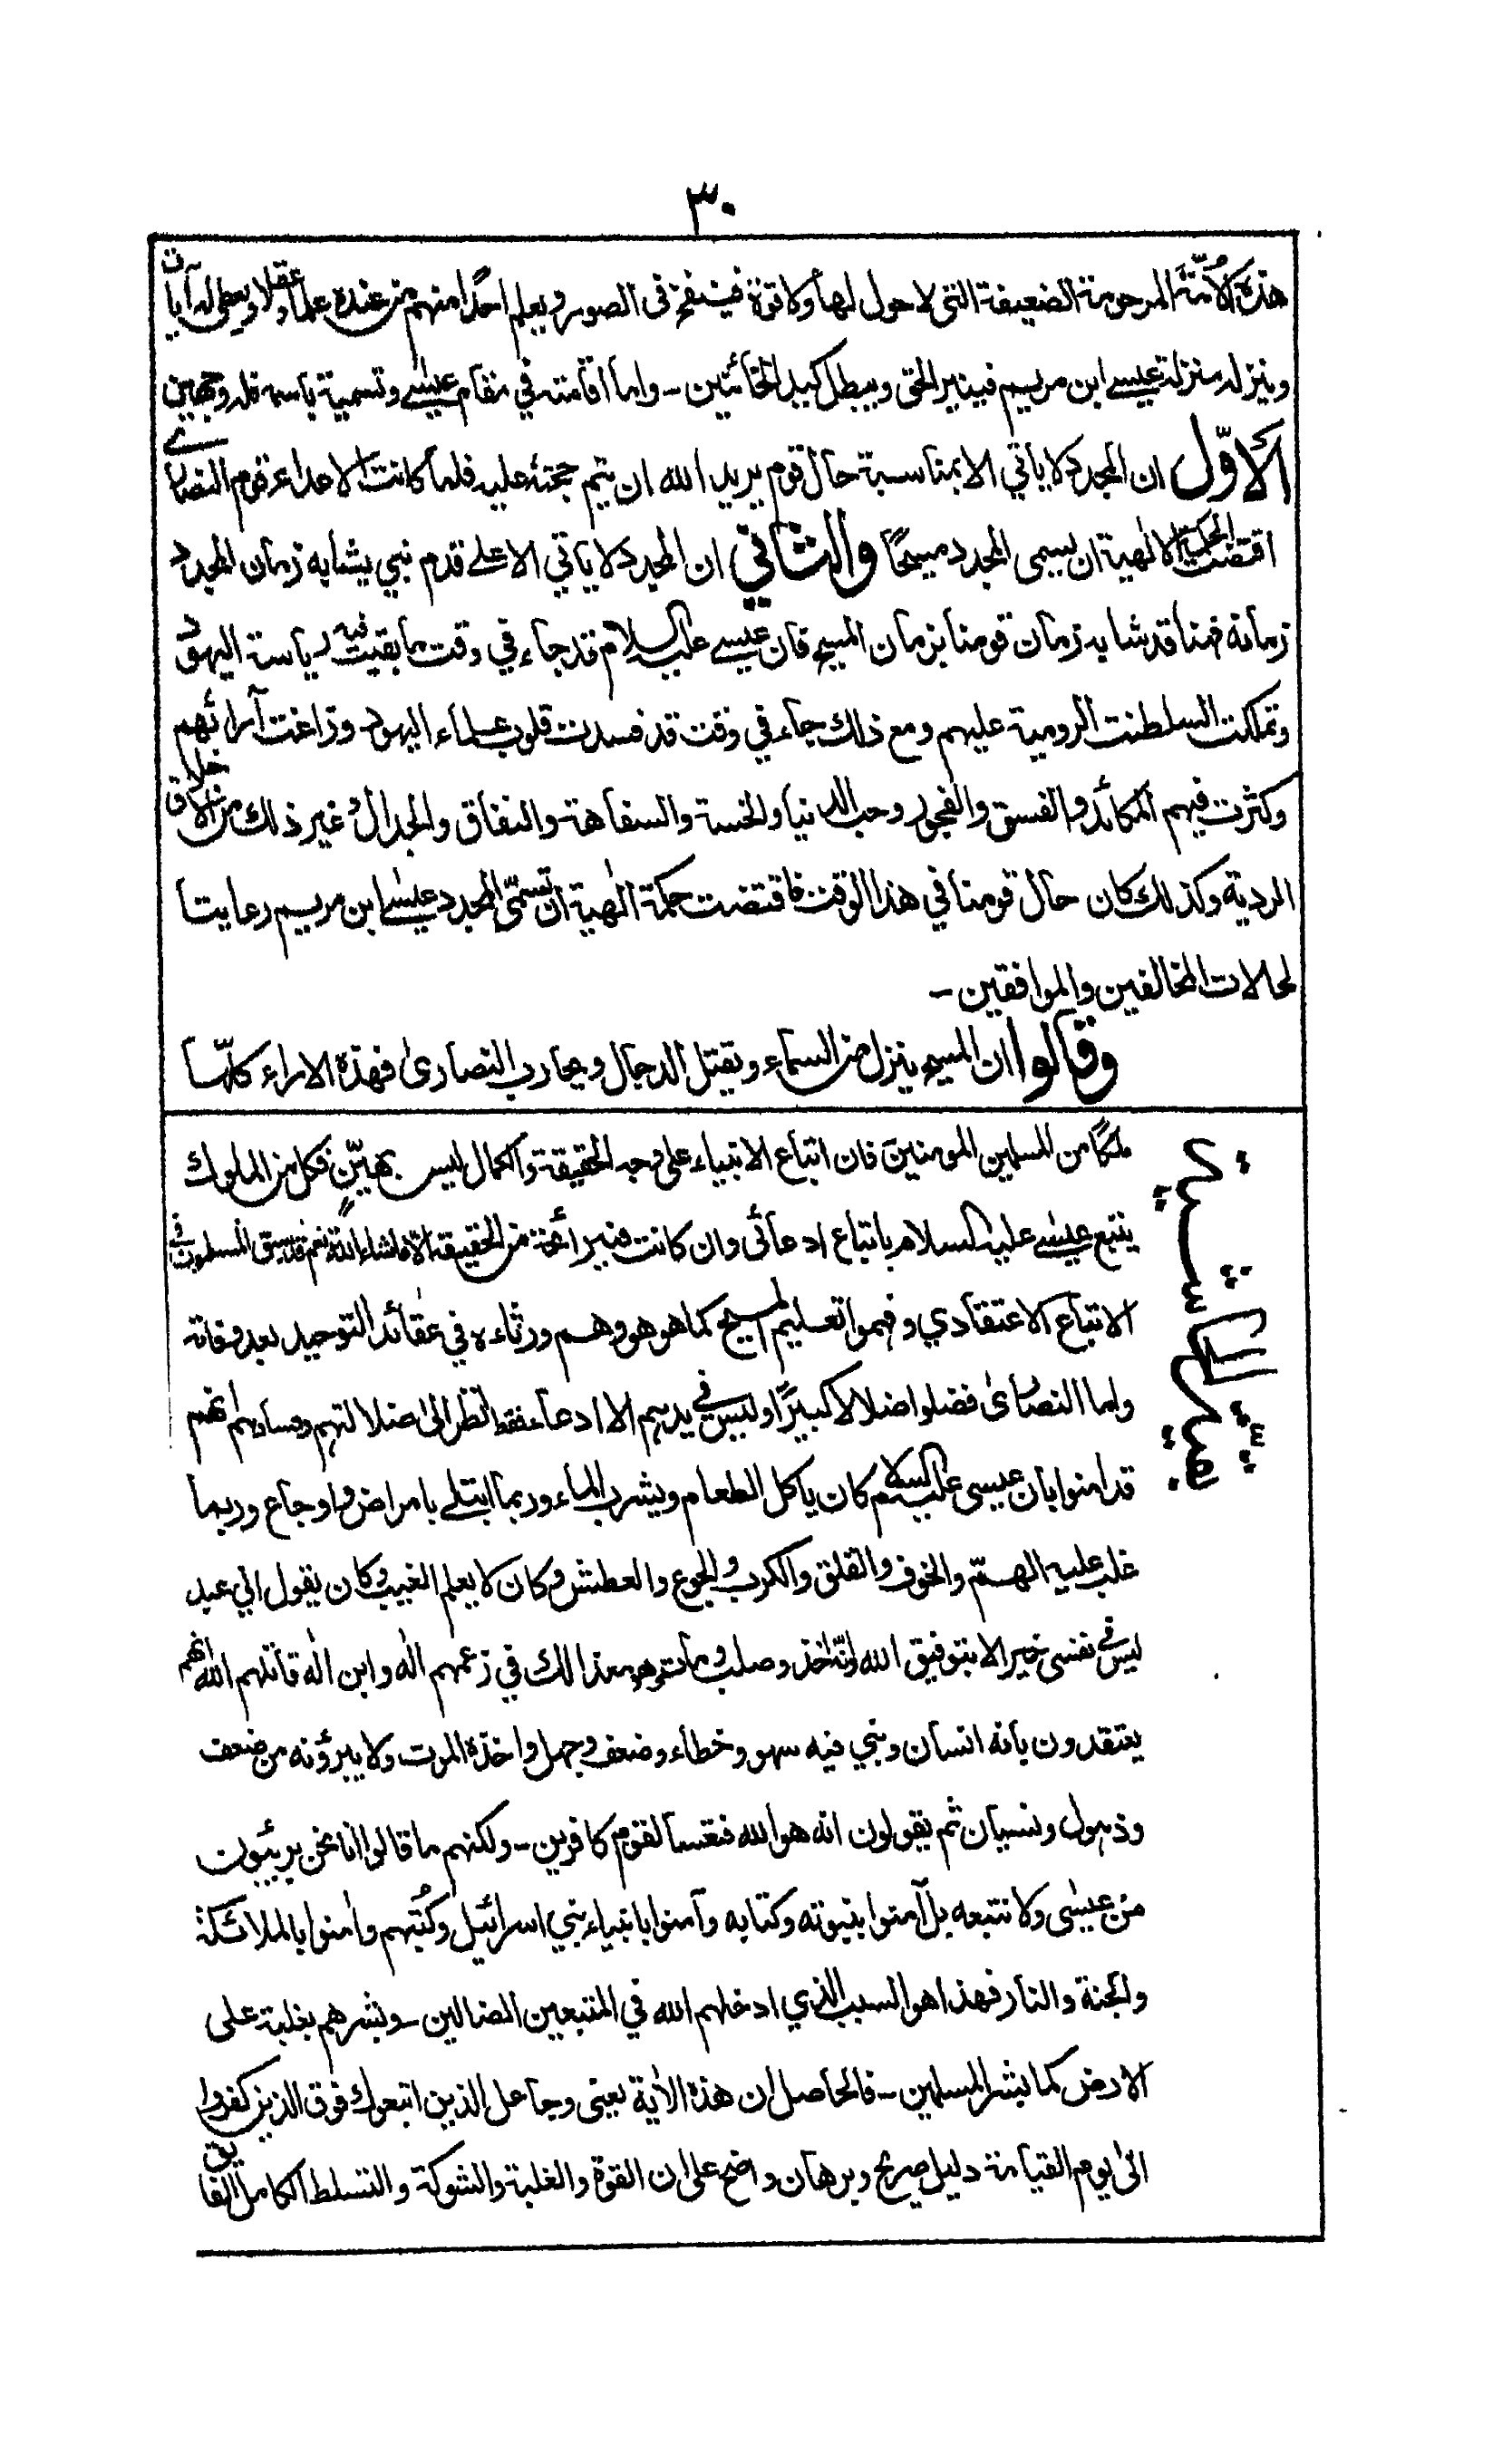 ٣٠
هذه الامّة المرحومة الضعيفة التي لا حول لها ولا قوة فينفخ في الصور ويعلم احدًا منهم من عنده علما وعقلا ويعطي له آيات
وينزله منزلة عيسے ابن مريم فينير الحق ويبطل كيد الخائنين - واما اقامته في مقام عيسٰے وتسمية باسمه فله وجهين
الاوّل ان المجدد لا ياتي الا بمناسبة حال قوم يريد الله ان يتم حجته عليه فلما كانت الاعداء قوم النصارے
اقتضت الحكمة الالهية ان يسمى المجدد مسيحًا والثاني ان المجدد لا ياتي الا علے قدم نبي يشابه زمان المجدد
زمانه فهنا قد شابه زمان قومنا بزمان المسيح فان عيسے عليه السلام قد جاء في وقت ما بقيت فيه رياسة اليهود
وتملكت السلطنت الرومية عليهم ومع ذلك جاء في وقت قد فسدت قلوب علماء اليهود - وزاغت آرائهم
وكثرت فيهم المكائد والفسق والفجور وحب الدنيا والخسة والسفاهة والنفاق والجدال وغير ذلك من الاخلاق
الردية وكذلك كان حال قومنا في هذا الوقت فاقتضت حكمة الٰهية ان تسمّي المجدد عيسٰے ابن مريم رعايتا
لحالات المخالفين والموافقين -
وقالوا ان المسيح ينزل من السماء ويقتل الدجال ويحارب النصارىٰ فهذه الاراء كلّها
ملكًا من المسلمين المومنين فان اتباع الانبياء على وجه الحقيقة والكمال ليس بهيّن فكل من الملوك
يتبع عيسٰے عليه السلام باتباع ادعائي وان كانت فيه رائحة من الحقيقة الا ماشاء الله نعم قد سبق المسلمون في
الاتباع الاعتقادي وفهموا تعليم المسيح كما هو هو وهم ورثاءه في عقائد التوحيد بعد وفاته
واما النصارىٰ فضلوا ضلالا كبيرًا وليس في يديهم الا ادعاء فقط انظر الى ضلالتهم وفسادهم انهم
قد امنوا بان عيسى عليه السلام كان ياكل الطعام ويشرب الماء وربما ابتلے بامراض واوجاع وربما
غلب عليه الهمّ والخوف والقلق والكرب والجوع والعطش وكان لا يعلم الغيب وكان يقول اني عبد
ليس في نفسي خير الا بتوفيق الله وانّه اخذ وصلب ومات وهو مع ذالك في زعمهم الٰه وابن الٰه قاتلهم الله انهم
يعتقدون بانه انسان ونبي فيه سهو وخطاء وضعف وجهل واخذه الموت ولا يبرؤنه من ضعف
وذهول ونسيان ثم يقولون انه هو الله فتعسا لقوم كافرين - ولكنهم ما قالوا انا نحن بريئون
من عيسٰى ولا نتبعه بل آمنوا بنبوته وكتابه وآمنوا بانبياء بني اسرائيل وكُتبهم وامنوا بالملائكة
والجنة والنار فهذا هو السبب الذي ادخلهم الله في المتبعين الضالين - وبشرهم بغلبة على
الارض كما بشر المسلمين - فالحاصل ان هذه الاٰية يعني وجاعل الذين اتبعوك فوق الذين كفروا
الىٰ يوم القيامة دليل صريح وبرهان واضح على ان القوة والغلبة والشوكة والتسلط الكامل الفايق